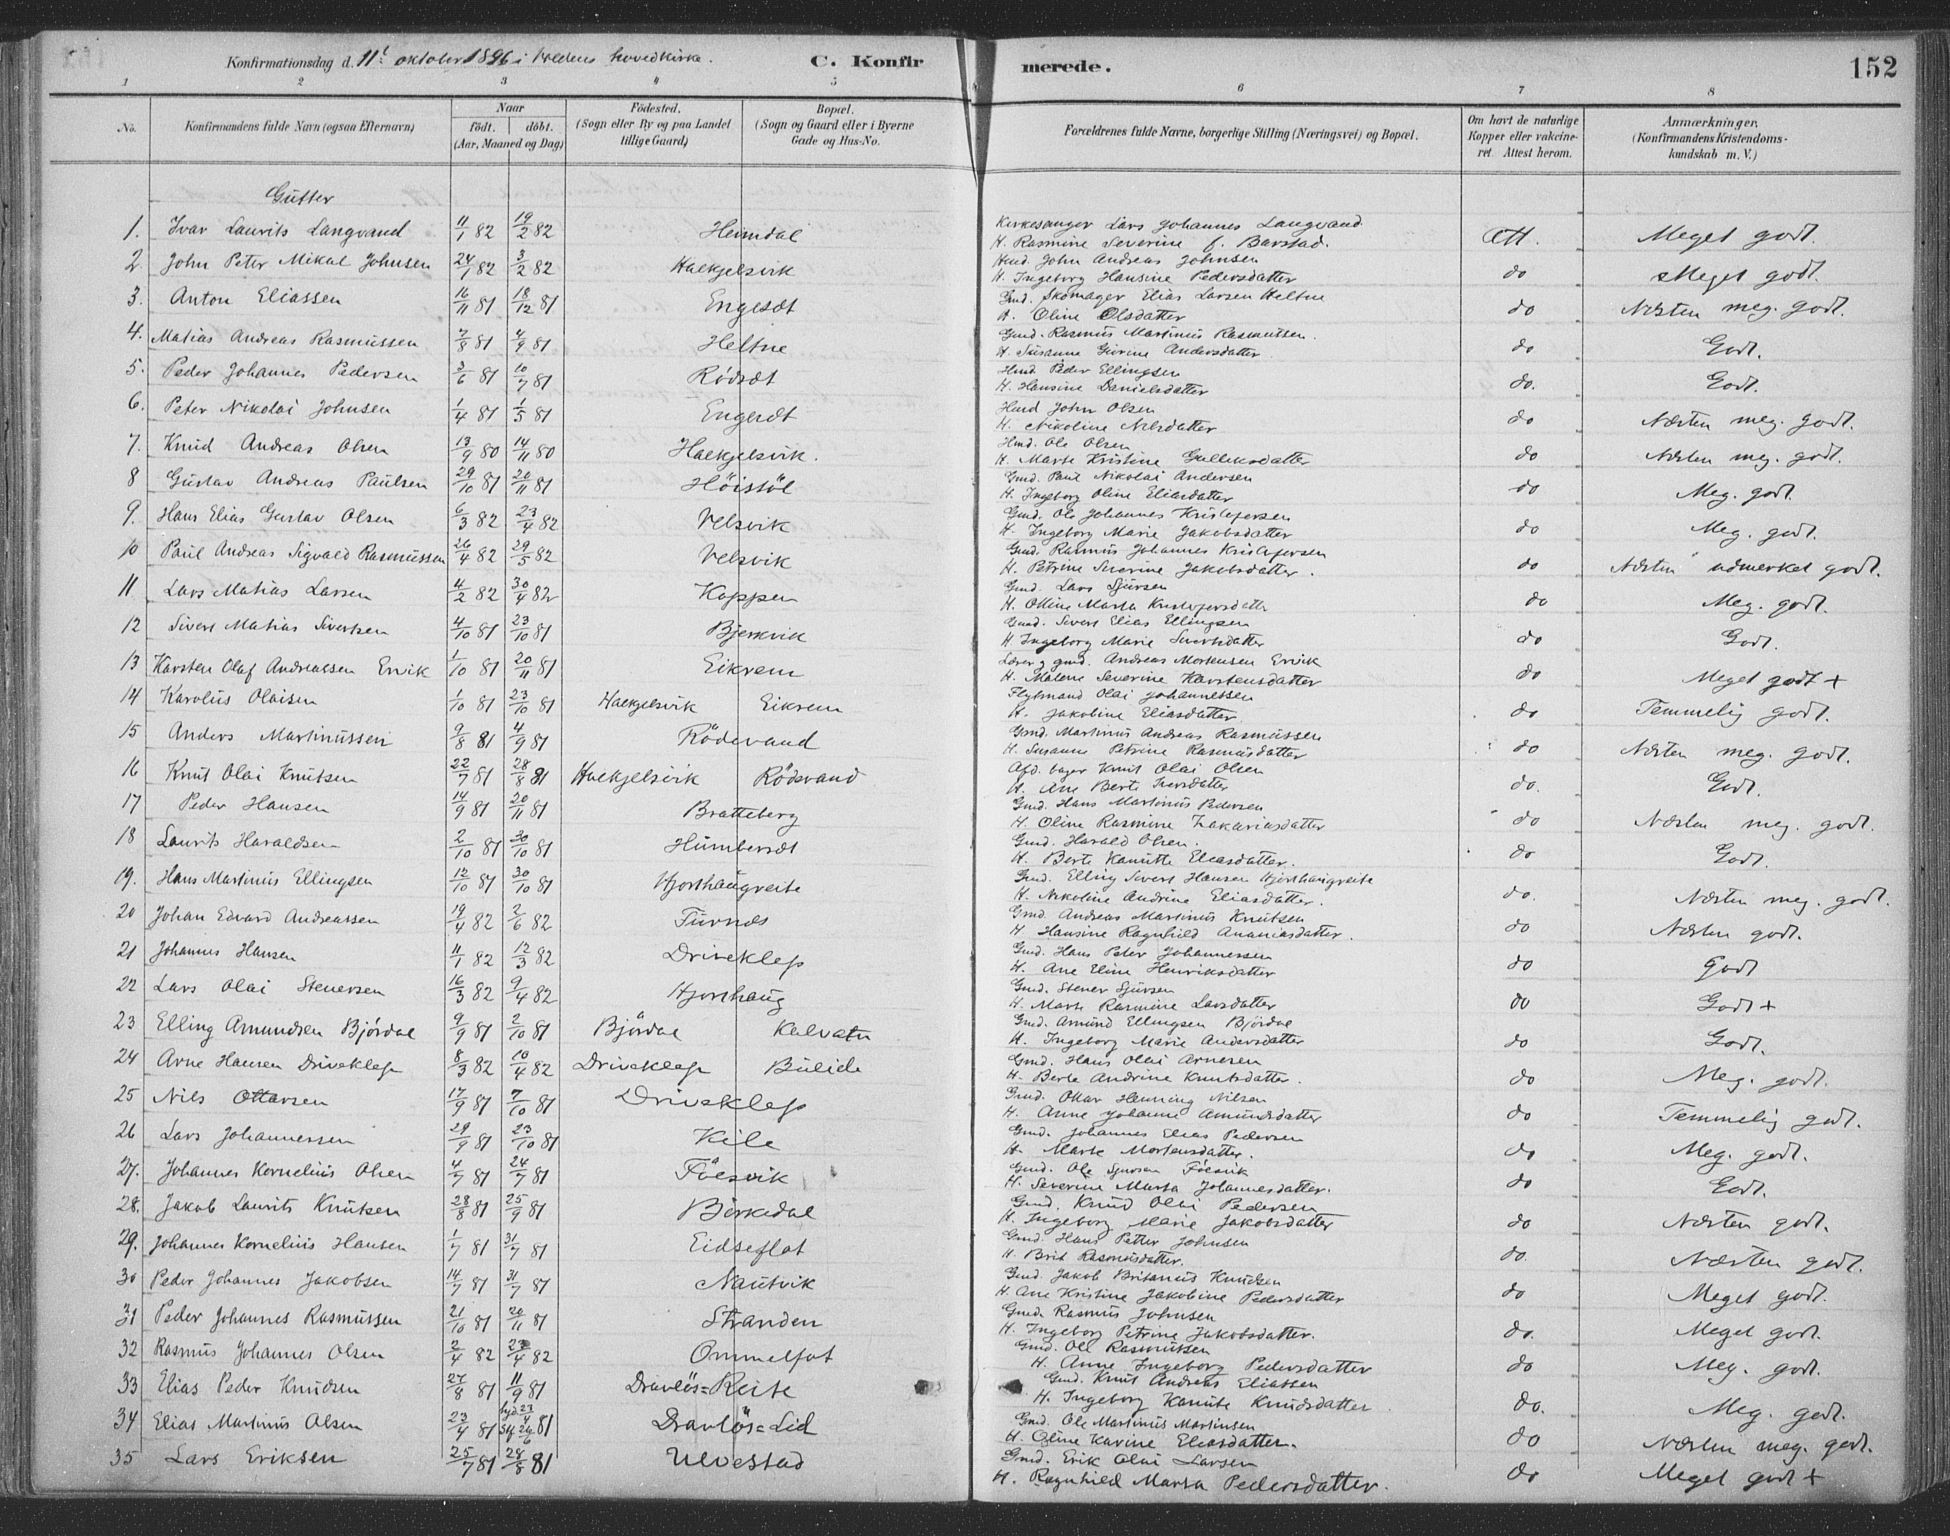 Konfirmationsdag d. 11t oktober 1896 i Voldens hovedkirke.
C. Konfir
merede.
152
1 2 3 4 5 6 7 8
No.
Konfirmandens fulde Navn (ogsaa Efternavn)
Naar
födt. döbt.
(Aar, Maaned og Dag)
Födested.
(Sogn eller By og paa Landet
tillige Gaard)
Bopæl.
(Sogn og Gaard eller i Byerne
Gade og Hus-No.
Forældrenes fulde Navne, borgerlige Stilling (Næringsvei) og Bopæl.
Om havt de naturlige
Kopper eller vakcine-
ret. Attest herom.
Anmærkninger,
(Konfirmandens Kristendoms-
kundskab m. V.)
Gutter
1. Ivar Laurits Langvand 11/1 82 19/2 82 Heimdal Kirkesanger Lars Johannes Langvand Att. Meget godt.
H. Rasmine Severine f. Barstad.
2. John Peter Mikal Johnsen 24/1 82 3/2 82 Halkjelsvik Hmd. John Andreas Johnsen do Meget godt.
H. Ingeborg Hansine Pedersdatter
3. Anton Eliassen 16/11 81 18/12 81 Engesæt Gmd. Skomager Elias Larsen Heltne do Næsten meg. godt.
H. Oline Olsdatter
4. Matias Andreas Rasmussen 7/8 81 4/9 81 Heltne Gmd. Rasmus Martinus Rasmussen do Godt.
H. Susanne Gurine Andersdatter
5. Peder Johannes Pedersen 3/6 81 10/7 81 Rödsæt Hmd. Peder Ellingsen do. Godt.
H. Hansine Danielsdatter
6. Peter Nikolai Johnsen 1/4 81 1/5 81 Engesæt Hmd John Olsen do Næsten meg. godt.
H. Nikoline Nilsdatter
7. Knud Andreas Olsen 13/9 80 14/11 80 Halkjelsvik. Hmd. Ole Olsen do Næsten meg. godt.
H. Marte Kristine Gulleksdatter
8 Gustav Andreas Paulsen 29/10 81 20/11 81 Höistöl Gmd. Paul Nikolai Andersen do Meg. godt.
H. Ingeborg Oline Eliasdatter
9. Hans Elias Gustav Olsen 6/3 82 23/4 82 Velsvik Gmd. Ole Johannes Kristofersen do Meg. godt.
H. Ingeborg Marie Jakobsdatter
10 Paul Andreas Sigvald Rasmussen 26/4 82 29/5 82 Velsvik Gmd. Rasmus Johannes Kristofersen do Næsten udmerket godt.
H. Petrine Severine Jakobsdatter.
11 Lars Matias Larsen 4/2 82 30/4 82 Koppen Gmd. Lars Sjursen do Meg. godt.
H. Olline Marta Kristofersdatter
12 Sivert Matias Sivertsen 4/10 81 23/10 81 Bjerkvik Gmd. Sivert Elias Ellingsen do Godt.
H Ingeborg Marie Sivertsdatter
13 Karsten Olaf Andreassen Ervik 1/10 81 20/11 81 Eikrem Lærer g gmd. Andreas Mortensen Ervik do Meget godt +
H. Malene Severine Karstensdatter
14 Karolus Olaisen 1/10 81 23/10 81 Halkjelsvik Eikrem Flytmand Olai Johannessen do Temmelig godt.
H. Jakobine Eliasdatter
15 Anders Martinussen 9/8 81 4/9 81 Rödevand Gmd. Martinus Andreas Rasmussen do Næsten meg. godt.
H. Susanne Petrine Rasmusdatter
16 Knut Olai Knutsen 22/7 81 28/8 81 Halkjelsvik Rödevand Afd. bager Knut Olai Olsen do. Godt.
H. Ane Berte Iversdatter
17 Peder Hansen 14/9 81 20/11 81 Bratteberg Gmd. Hans Martinus Pedersen do Næsten meg. godt.
H. Oline Rasmine Zakariasdatter
18 Laurits Haraldsen 2/10 81 30/10 81 Humberset Gmd. Harald Olsen. do Godt.
H. Berte Kanutte Eliasdatter.
19. Hans Martinus Ellingsen 12/10 81 30/10 81 Hjorthaugreite Gmd. Elling Sivert Hansen Hjorthaugreite do. Næsten meg. godt.
H. Nikoline Andrine Eliasdatter.
20 Johan Edvard Andreassen 19/4 82 2/6 82 Furnæs Gmd Andreas Martinus Knutsen do Næsten godt.
H Hansine Ragnhild Ananiasdatter.
21 Johannes Hansen 11/1 82 12/3 82 Driveklep Gmd. Hans Peter Johannessen do Godt
H. Ane Eline Henriksdatter
22 Lars Olai Stenersen 16/3 82 9/4 82 Hjorthaug Gmd. Stener Sjursen do Godt +
H. Marte Rasmine Larsdatter
23 Elling Amundsen Björdal 9/9 81 2/10 81 Björdal Kalvatn Gmd. Amund Ellingsen Björdal do Godt.
H. Ingeborg Marie Andersdatter
24 Arne Hansen Driveklep 8/3 82 10/4 82 Driveklep Bulide Gmd. Hans Olai Arnesen do Meg. godt.
H. Berte Andrine Knutsdatter.
25 Nils Ottarsen 17/9 81 7/10 81 Driveklep Gmd. Ottar Henning Nilsen do Temmelig godt.
H. Anne Johanne Amundsdatter
26 Lars Johannessen 29/9 81 23/10 81 Kile Gmd. Johannes Elias Pedersen do Meg. godt.
H. Marte Mortensdatter.
27. Johannes Kornelius Olsen 4/7 81 24/7 81 Fölsvik Gmd. Ole Sjursen Fölsvik do Godt.
H. Severine Marta Johannesdatter.
28. Jakob Laurits Knutsen 28/8 81 25/9 81 Börkedal Gmd. Knud Olai Pedersen do Næsten godt.
H. Ingeborg Marie Jakobsdatter
29. Johannes Kornelius Hansen 1/7 81 31/7 81 Eidseflot Gmd. Hans Petter Johnsen do Næsten godt.
H. Brit Rasmusdatter.
30 Peder Johannes Jakobsen 14/7 81 31/7 81 Nautvik Gmd. Jakob Britanus Knudsen do Meget godt.
H. Ane Kristine Jakobine Pedersdatter
31 Peder Johannes Rasmussen 21/10 81 20/11 81 Stranden Gmd. Rasmus Johnsen do. Meget godt.
H. Ingeborg Petrine Jakobsdatter.
32 Rasmus Johannes Olsen 2/4 82 23/4 82 Ommelfot Gmd. Ole Rasmussen do Meg. godt.
H. Anne Ingeborg Pedersdatter
33 Elias Peder Knudsen 27/8 81 11/9 81 Dravlös=Reite Gmd. Knut Andreas Eliassen do. Meg. godt.
H. Ingeborg Kanute Knudsdatter
34 Elias Martinus Olsen 23/4 81 hjd 23/4 Stf 26/6 81 Dravlös=Lid Gmd. Ole Martinus Martinsen do Næsten meg. godt.
H. Oline Karine Eliasdatter.
35 Lars Eriksen 25/7 81 28/8 81 Ulvestad Gmd. Erik Olai Larsen do Meget godt +
H. Ragnhild Marta Pedersdatter.